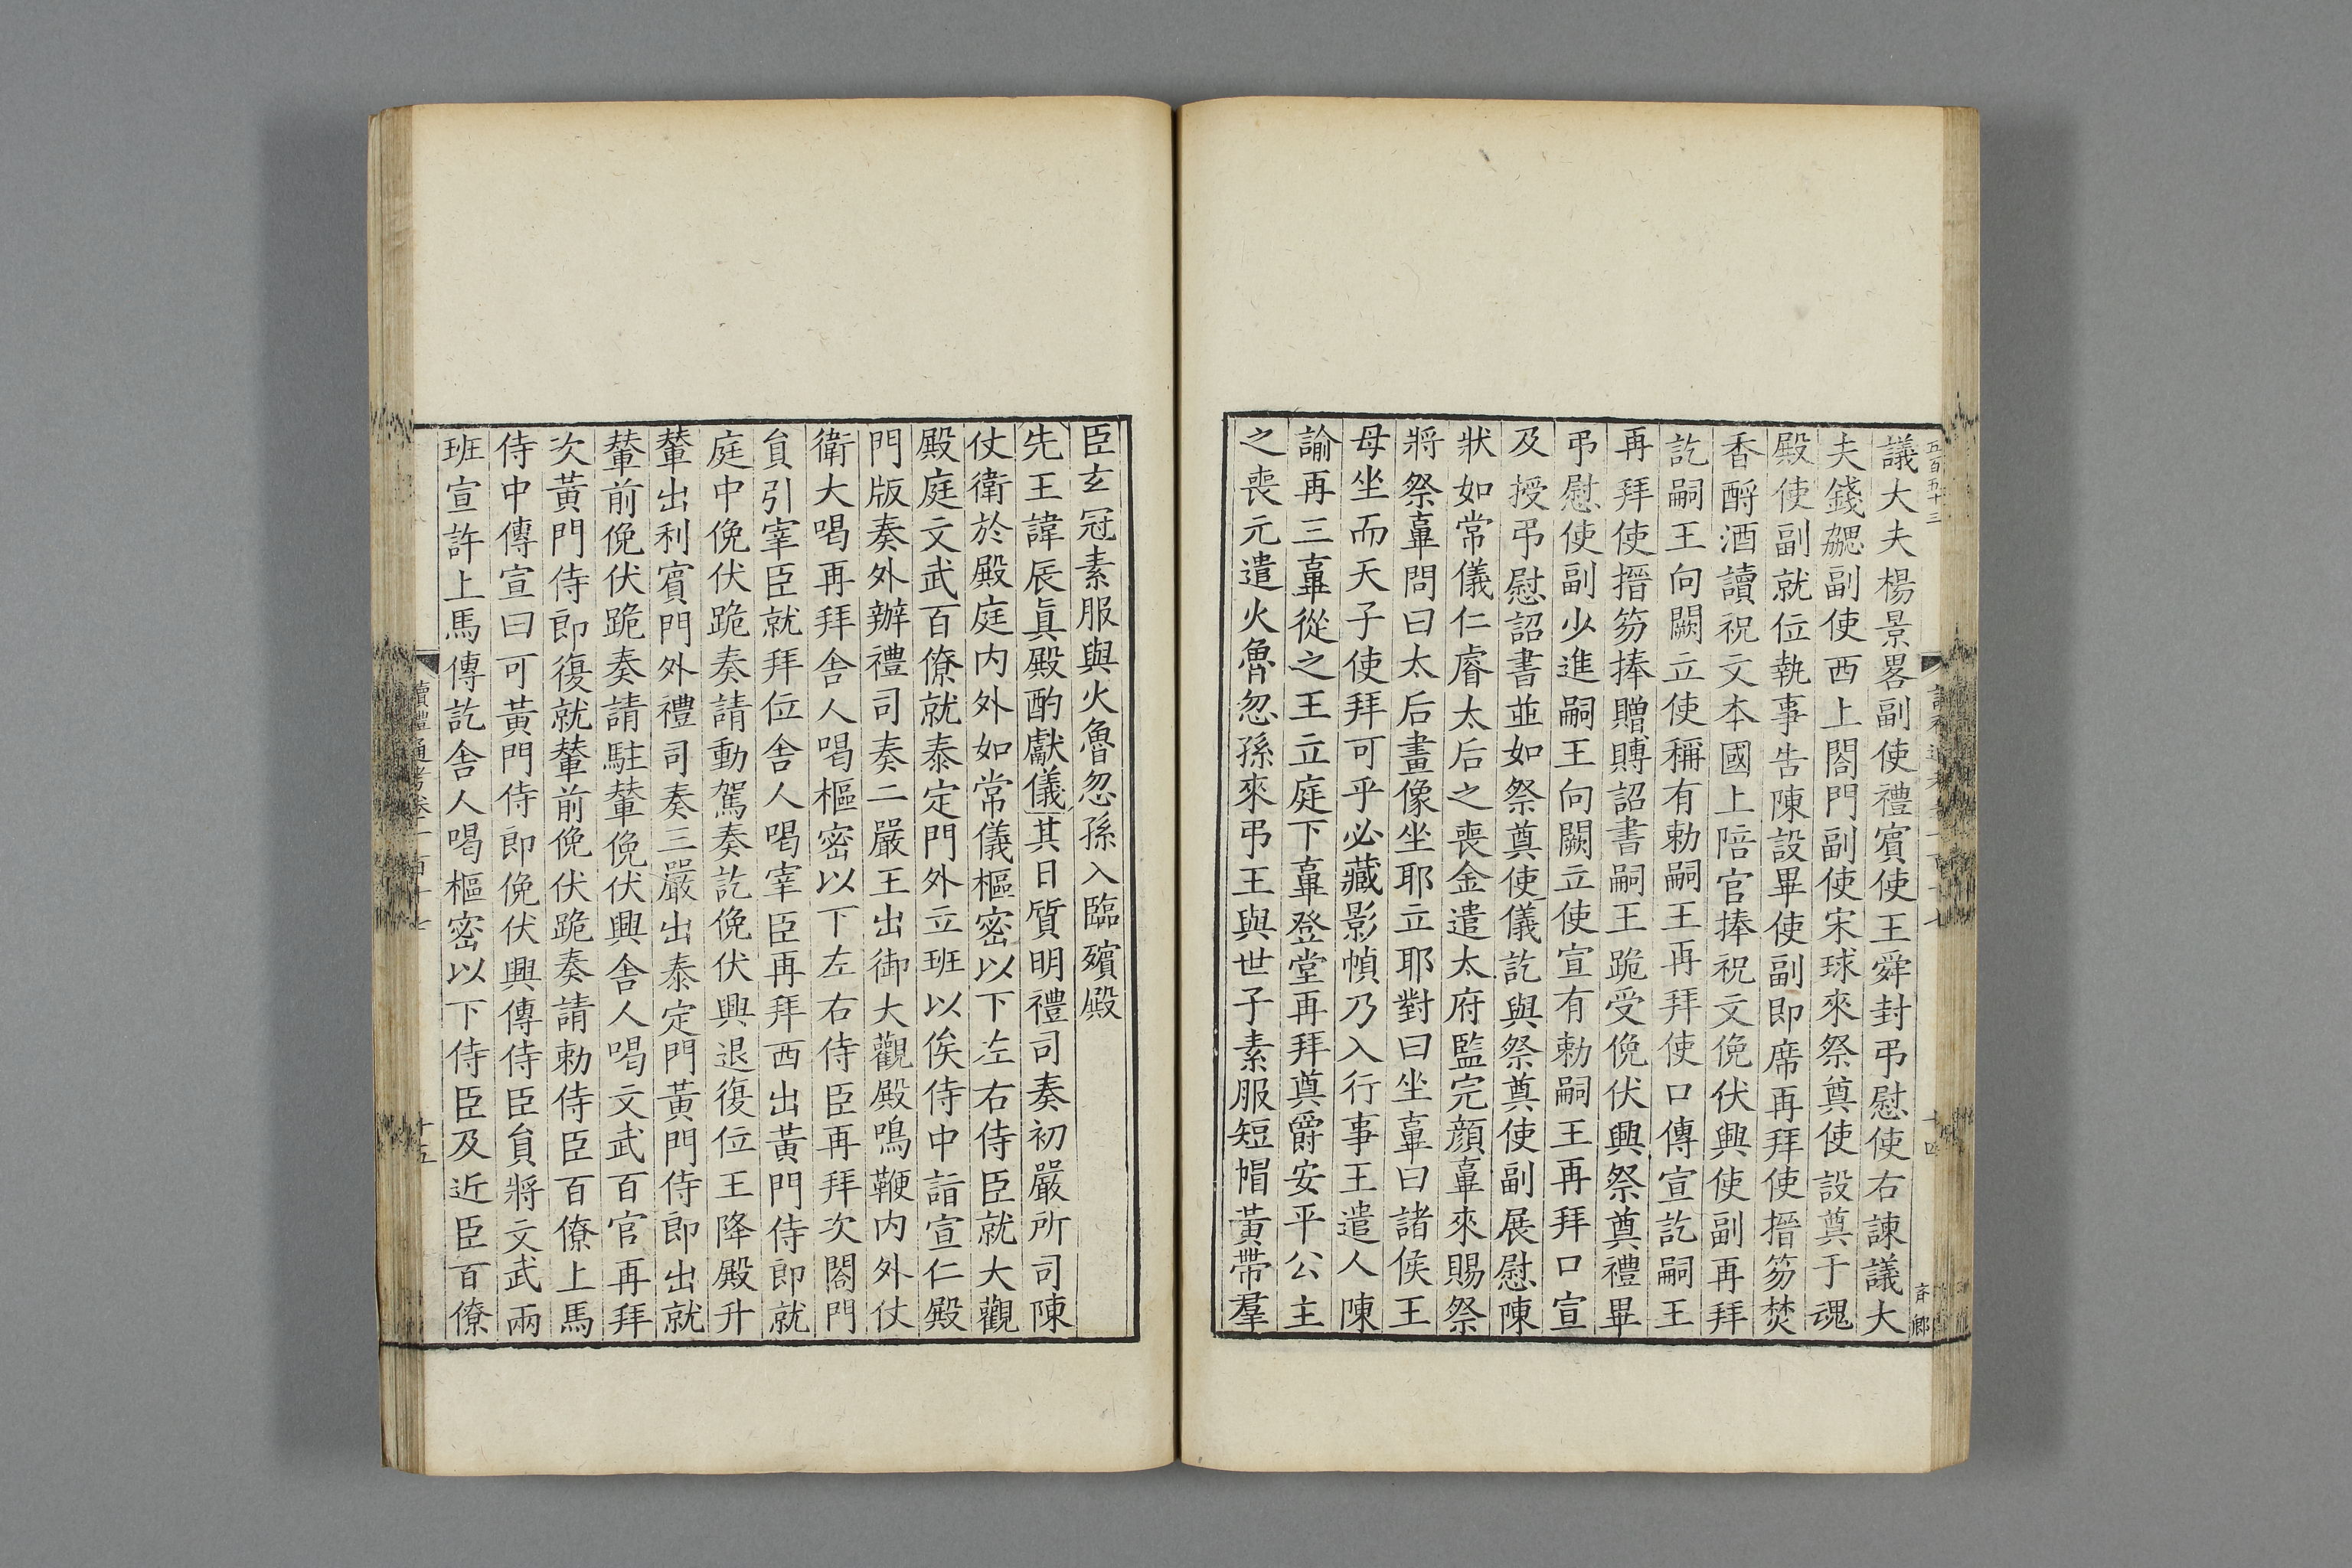 五百五十三
議大夫楊景畧副使禮賓使王舜封弔慰使右諫議大
夫錢勰副使西上閤門副使宋球來祭奠使設奠于魂
殿使副就位執事告陳設畢使副即席再拜使搢笏焚
香酹酒讀祝文本國上陪官捧祝文俛伏興使副再拜
訖嗣王向闕立使稱有勅嗣王再拜使口傳宣訖嗣王
再拜使搢笏捧贈賻詔書嗣王跪受俛伏興祭奠禮畢
弔慰使副少進嗣王向闕立使宣有勅嗣王再拜口宣
及授弔慰詔書並如祭奠使儀訖與祭奠使副展慰陳
狀如常儀仁睿太后之喪金遣太府監完顔𩌏來賜祭
將祭𩌏問曰太后畫像坐耶立耶對曰坐𩌏曰諸侯王
母坐而天子使拜可乎必藏影幀乃入行事王遣人陳
諭再三𩌏從之王立庭下𩌏登堂再拜奠爵安平公主
之喪元遣火魯忽孫來弔王與世子素服短帽黃帶羣
臣玄冠素服與火魯忽孫入臨殯殿
先王諱辰眞殿酌獻儀其日質明禮司奏初嚴所司陳
仗衛於殿庭内外如常儀樞密以下左右侍臣就大觀
殿庭文武百僚就泰定門外立班以俟侍中詣宣仁殿
門版奏外辦禮司奏二嚴王出御大觀殿鳴鞭内外仗
衛大喝再拜舎人喝樞密以下左右侍臣再拜次閤門
貟引宰臣就拜位舎人喝宰臣再拜西出黃門侍郎就
庭中俛伏跪奏請動駕奏訖俛伏興退復位王降殿升
輦出利賓門外禮司奏三嚴出泰定門黃門侍郎出就
輦前俛伏跪奏請駐輦俛伏興舎人喝文武百官再拜
次黃門侍郎復就輦前俛伏跪奏請勅侍臣百僚上馬
侍中傳宣曰可黃門侍郎俛伏興傳侍臣貟將文武兩
班宣許上馬傳訖舎人喝樞密以下侍臣及近臣百僚
讀禮通考卷一百十七
十五